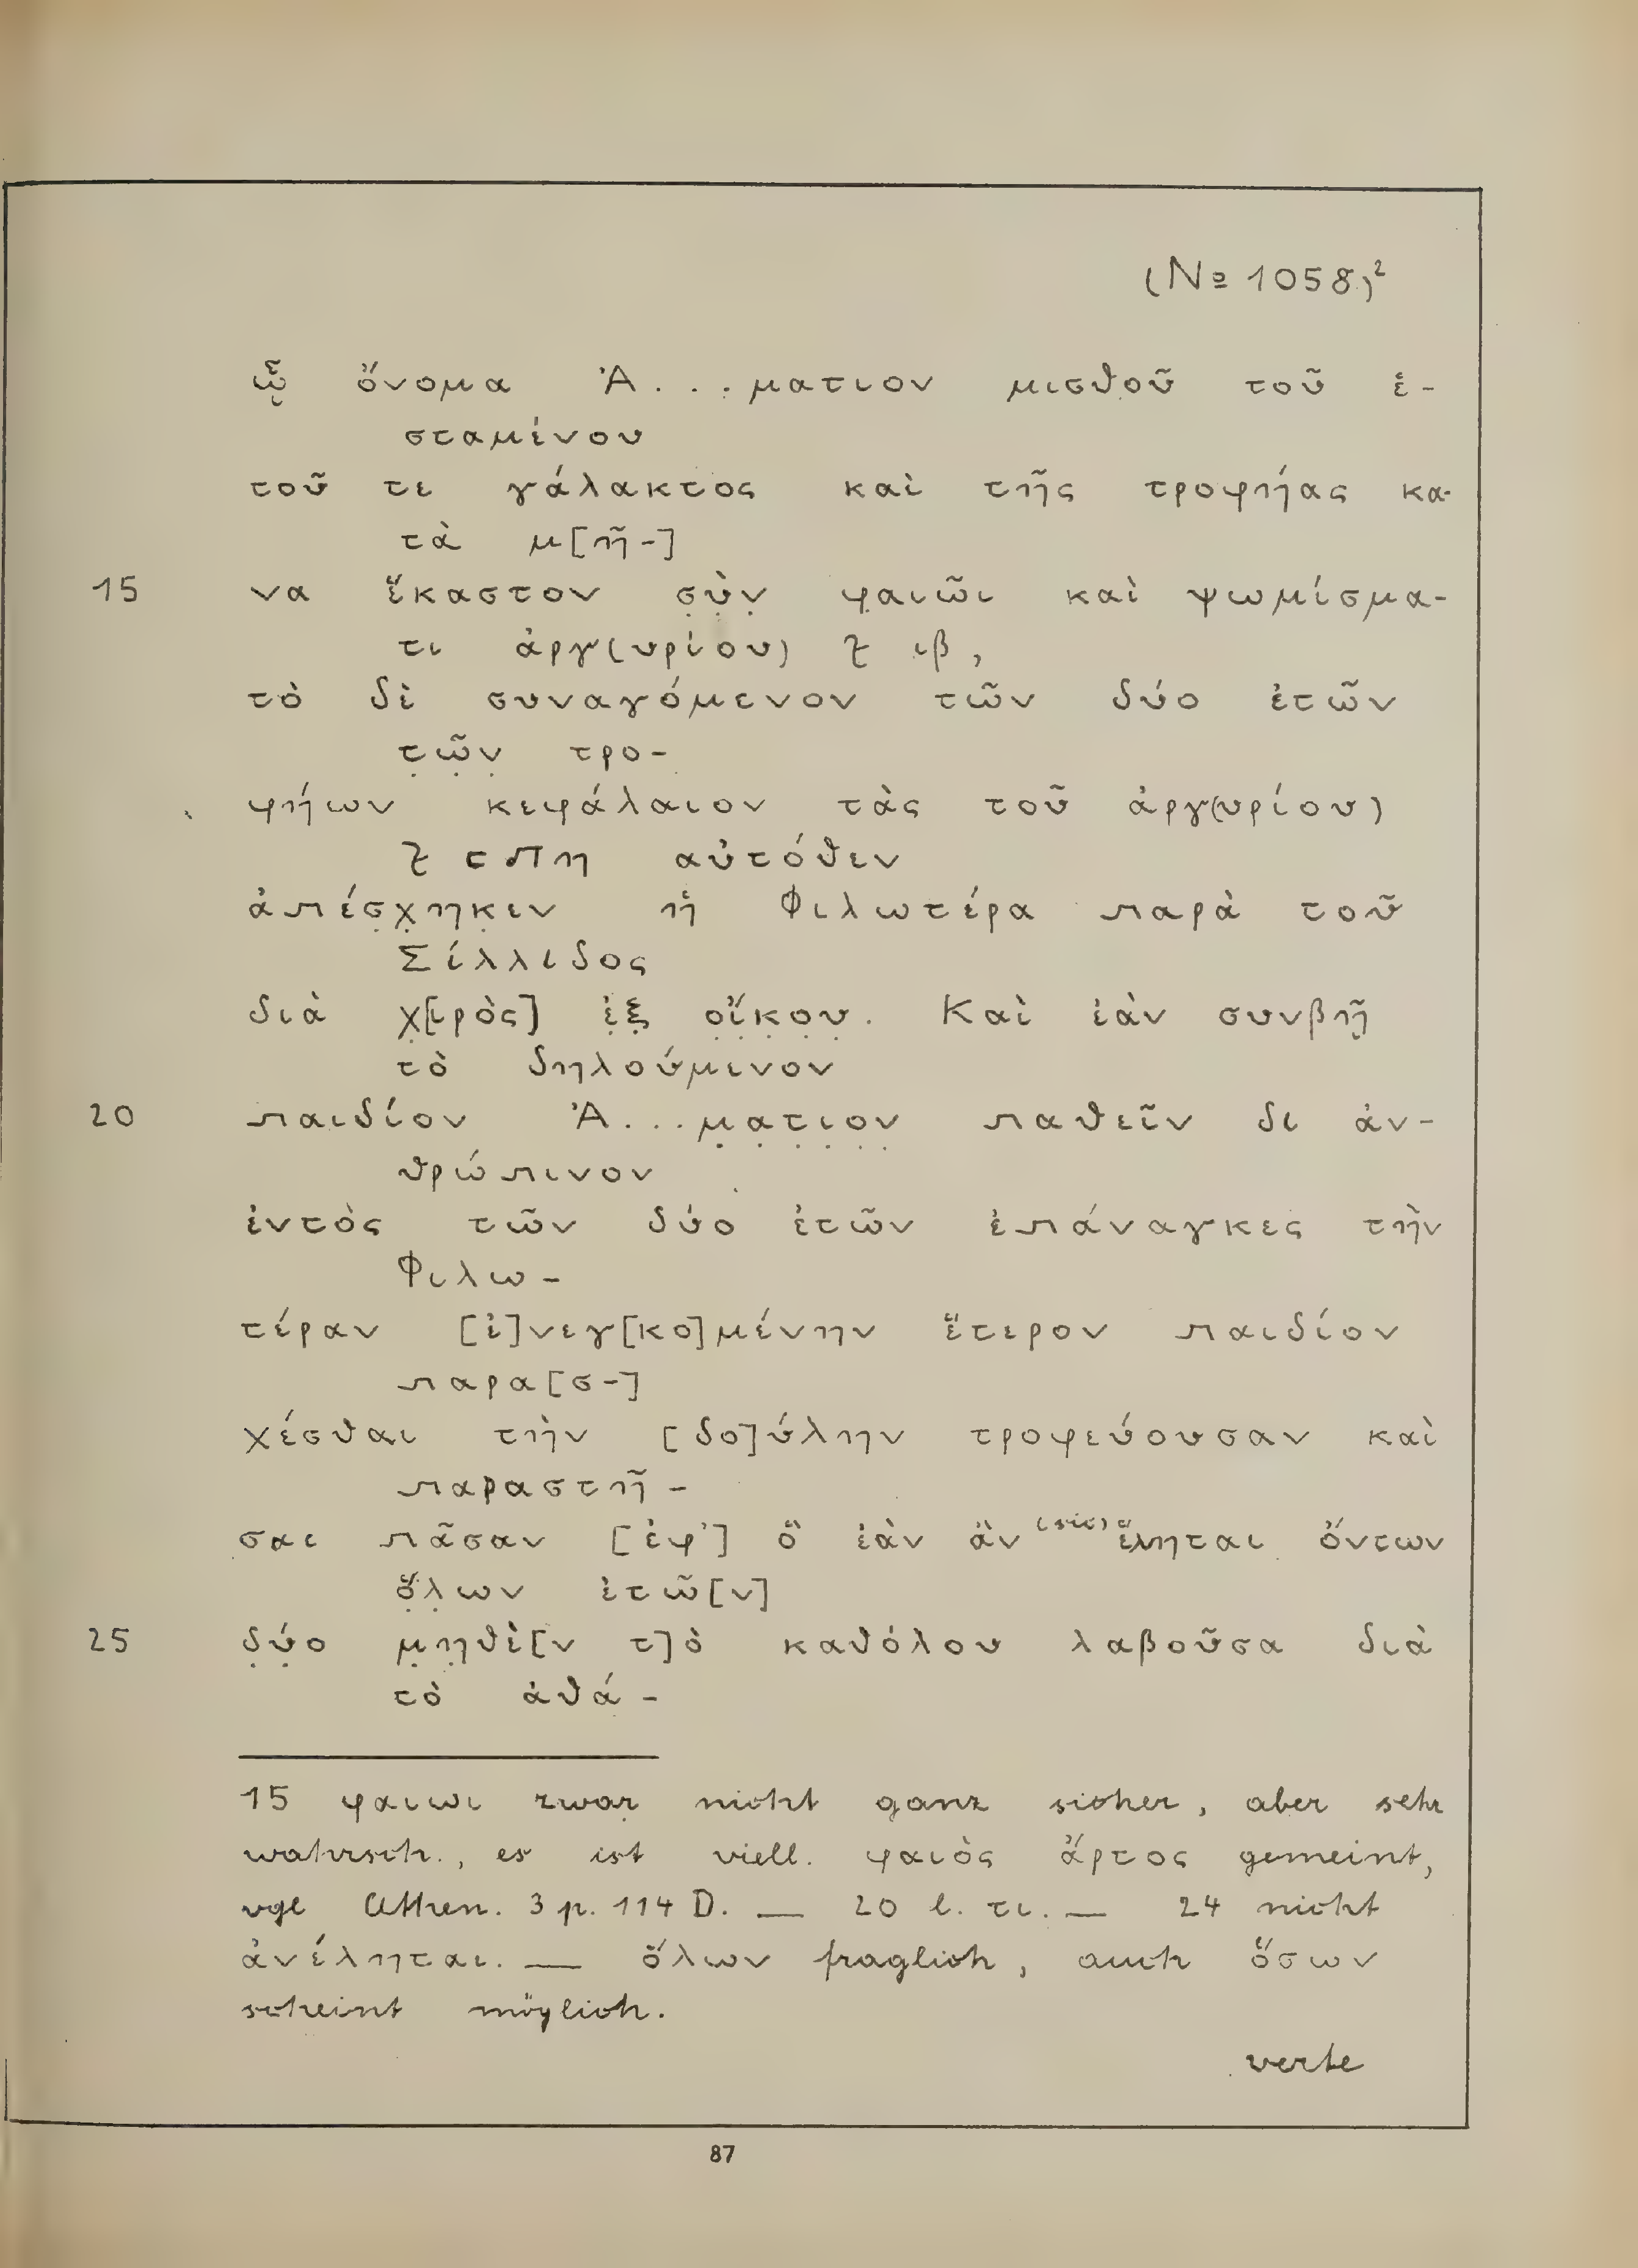 (№ 1058)²
ᾧ ὄνομα Ἀ . . . ματιον μισθοῦ τοῦ ἑ-
σταμένου
τοῦ τε γάλακτος καὶ τῆς τροφήας κα-
τὰ μ[ῆ-]
15 να ἕκαστον σ̣ὺ̣ν̣ φ̣αιῶι καὶ ψωμίσμα-
τι ἀργ(υρίου) 𐅻 ιβ,
τὸ δὲ συναγόμενον τῶν δύο ἐτῶν
τ̣ῶ̣ν̣ τρο-
φήων κεφάλαιον τὰς τοῦ ἀργ(υρίου)
𐅻 σπη αὐτόθεν
ἀπέσ̣χ̣ηκ̣εν ἡ Φιλωτέρα παρὰ τοῦ
Σίλλιδος
διὰ χ̣[ιρὸς] ἐ̣ξ̣ ο̣ἴ̣κ̣ο̣υ̣. Καὶ ἐὰν συνβῇ
τὸ δηλούμενον
20 παιδίον Ἀ. . . μ̣α̣τ̣ι̣ο̣ν̣ παθεῖν δι ἀν-
θρώπινον
ἐντὸς τῶν δύο ἐτῶν ἐπάναγκες τὴν
Φιλω-
τέραν [ἐ]νεγ[κο]μένην ἕτερον παιδίον
παρα[σ-]
χέσθαι τὴν [δο]ύλην τροφεύουσαν καὶ
παραστῆ-
σαι πᾶσαν [ἐφ’] ὃ ἐὰν ἂν (sic) ἕληται ὄντων
ὅ̣λ̣ων ἐτῶ[ν]
25 δ̣ύ̣ο μ̣η̣θὲ[ν τ]ὸ καθόλου λαβοῦσα διὰ
τὸ ἀθά-
15 φαιωι zwar nicht ganz sicher, aber sehr
wahrsch., es ist viell. φαιὸς ἄρτος gemeint,
vgl Athen. 3 p. 114 D. — 20 l. τι. — 24 nicht
ἀνέληται. — ὅλων fraglich, auch ὅσων
scheint möglich.
verte
87